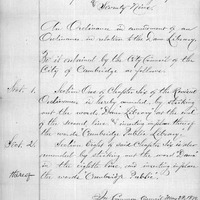 & Seventy Nine
An Ordinance in amendment of an
Ordinance in relation to the Dana Library.
Be it ordained by the City Council of the
City of Cambridge as follows.
Sect. 1. Section One of Chapter Six of the Revised
Ordinances is hereby amended by striking
out the words "Dana Library" at the end
of the second line & inserting
the words "Cambridge Public Library".
Sect. 2. Section Eight of said Chapter Six is also
amended by striking out the word "Dana"
in the eighth line, and inserting
thereof the words "Cambridge Public"
In Common Council May 1879